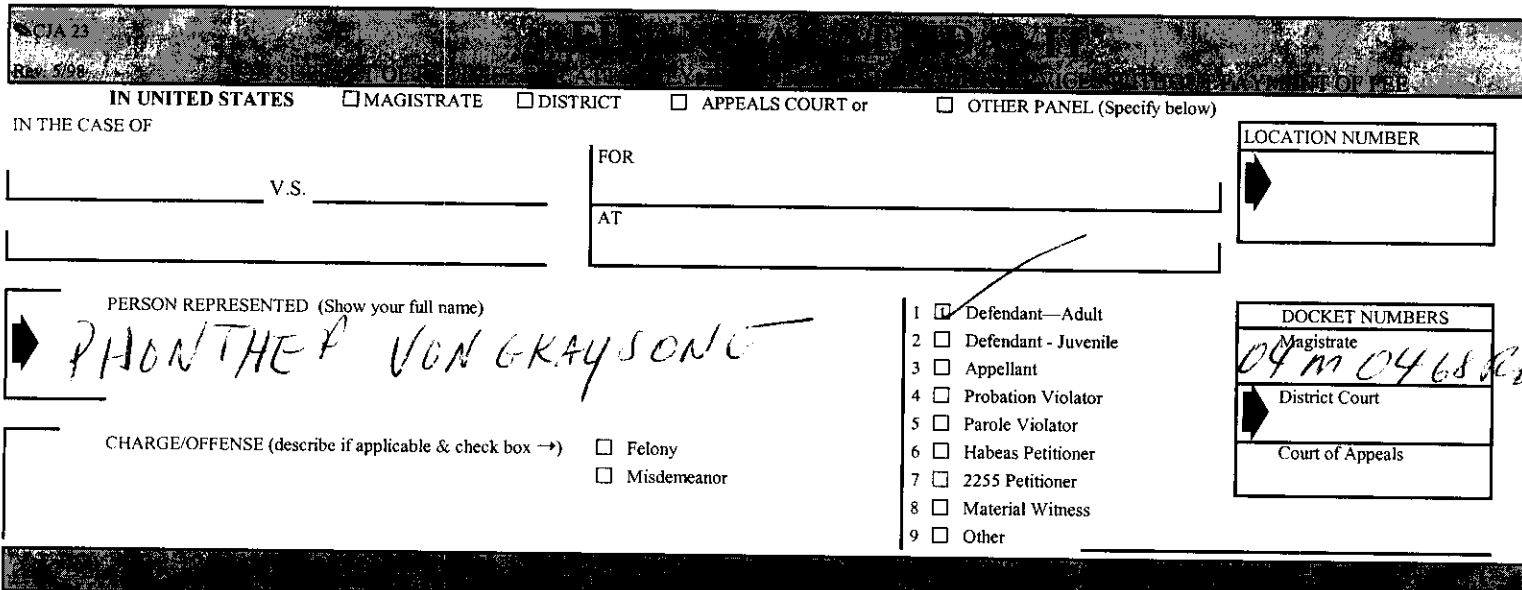 CJA 23
Rev. 5/98
PAYMENT OF FEE
IN UNITED STATES ☐ MAGISTRATE ☐ DISTRICT ☐ APPEALS COURT or ☐ OTHER PANEL (Specify below)
IN THE CASE OF
V.S.
FOR
AT
LOCATION NUMBER
PERSON REPRESENTED (Show your full name)
PHONTHEP
CHARGE/OFFENSE (describe if applicable & check box →) ☐ Felony
☐ Misdemeanor
1 ☑ Defendant—Adult
2 ☐ Defendant - Juvenile
3 ☐ Appellant
4 ☐ Probation Violator
5 ☐ Parole Violator
6 ☐ Habeas Petitioner
7 ☐ 2255 Petitioner
8 ☐ Material Witness
9 ☐ Other
DOCKET NUMBERS
Magistrate
04 m 0468
District Court
Court of Appeals